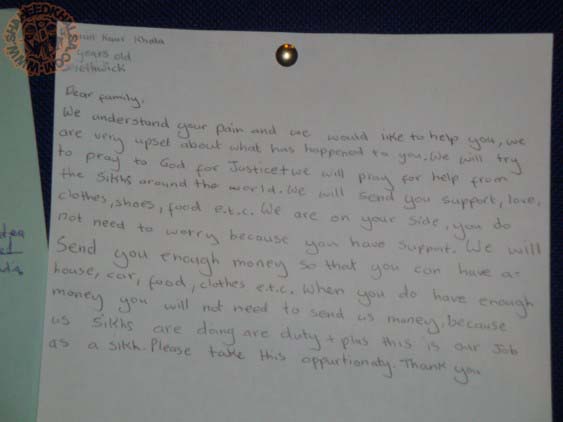 WWW.SHAHEEDKHALSA.COM
Kaur Khalsa
years old
Smethwick
Dear family,
We understand your pain and we would like to help you, we
are very upset about what has happened to you. We will try
to pray to God for Justice + we will pray for help from
the sikhs around the world. We will send you support, love,
clothes, shoes, food e.t.c. We are on your side, you do
not need to worry because you have support. We will
Send you enough money so that you can have a
house, car, food, clothes e.t.c. When you do have enough
money you will not need to send us money, because
us sikhs are doing are duty + plus this is our Job
as a sikh. Please take this oppurtionaty. Thank you